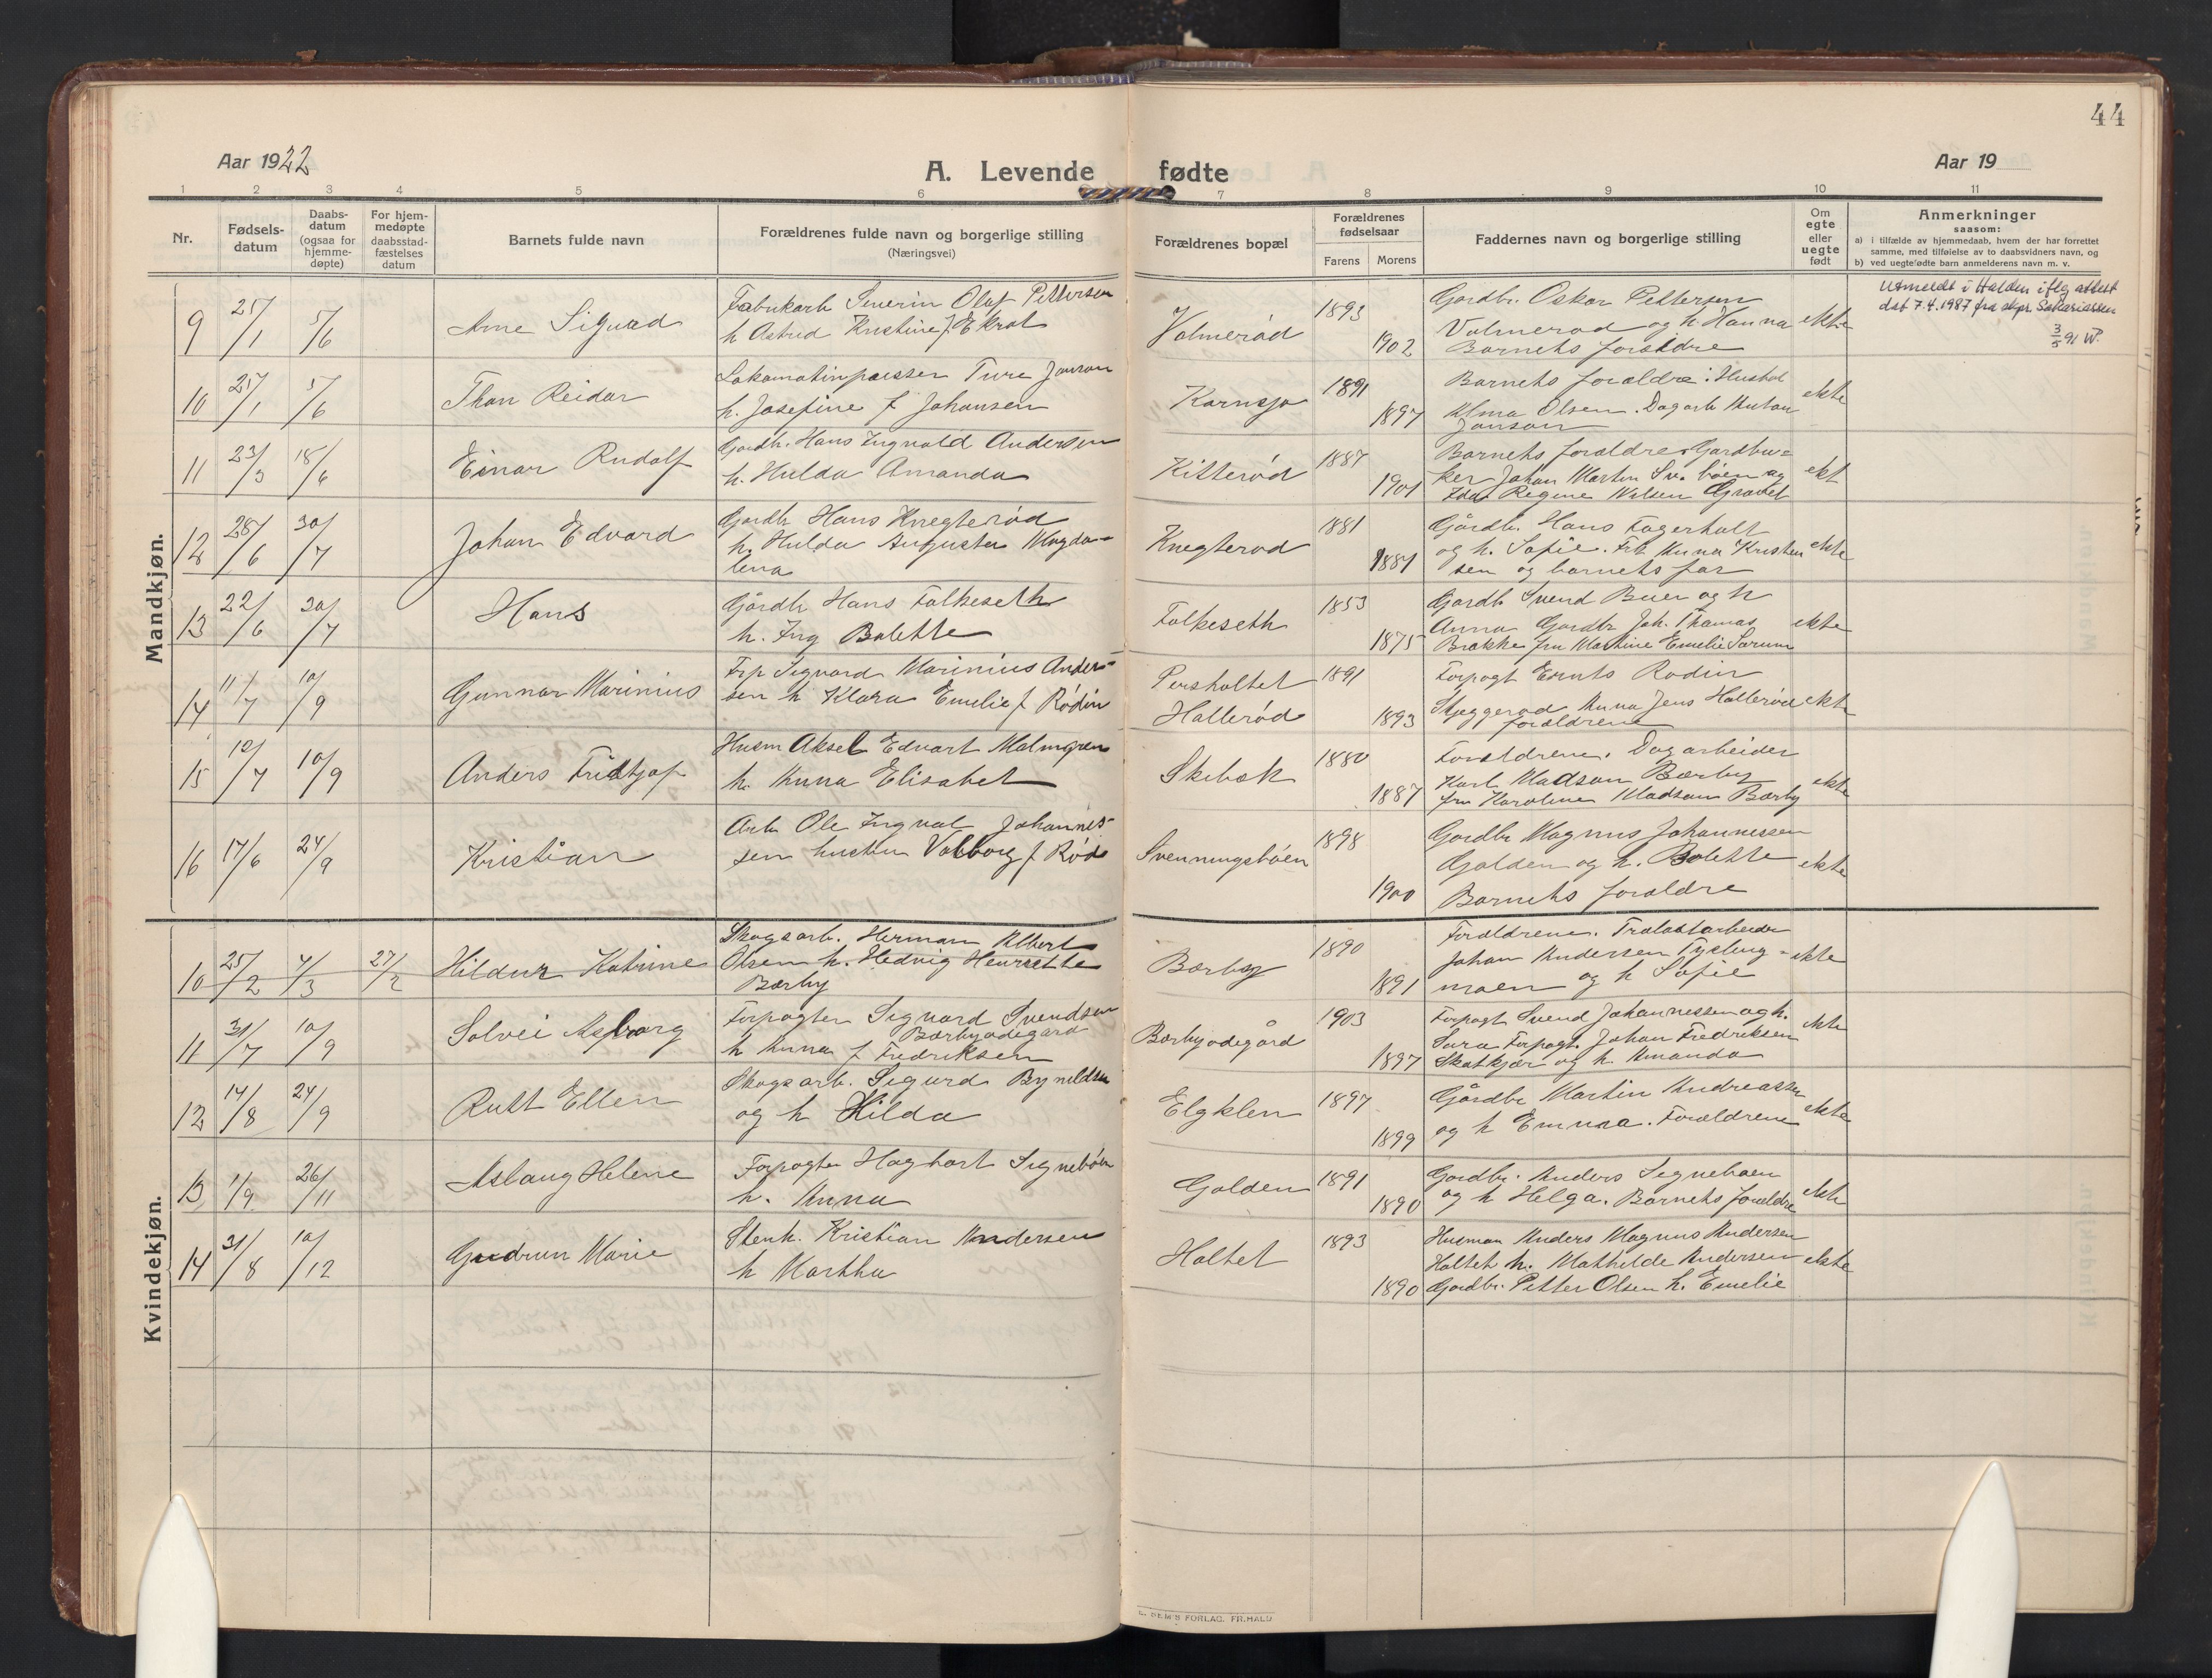 44
Aar 1922
A. Levende fødte
Aar 19
1 2 3 4 5 6 7 8 9 10 11
Nr.
Fødsels-
datum
Daabs-
datum
(ogsaa for
hjemme-
døpte)
For hjem-
medøpte
daabsstad-
fæstelses
datum
Barnets fulde navn
Forældrenes fulde navn og borgerlige stilling
(Næringsvei)
Forældrenes bopæl
Forældrenes
fødselsaar
Farens Morens
Faddernes navn og borgerlige stilling
Om
egte
eller
uegte
født
Anmerkninger
saasom:
a) i tilfælde av hjemmedaab, hvem der har forrettet
samme, med tilføielse av to daabsvidners navn, og
b) ved uegtefødte barn anmelderens navn m. v.
Mandkjøn.
9 25/1 5/6 Arne Sigvad
Fabrikarb Severin Olaf Pettersen
h Astrid Kristine f. Ekrot
Volmerød 1893 1902
Gardbr. Oskar Pettersen
Volmerød og h. Hanna
Barnets forældre
ekte
Utmeldt i Halden iflg attest
dat 7.4.1987 fra
3/5 91
10 25/1 5/6 Thon Reidar
Ture Janson
h. Josefine f Johansen
Kornsjø 1891 1897
Barnets forældre. Hushol
Alma Olsen. Dagarb Anton
Janson
ekte
11 23/3 18/6 Einar Rudolf
Gardb. Hans Ingvald Andersen
h. Hulda Amanda
Kitterød 1887 1901
Barnets forældre. Gardbru=
ker Johan Martin Sv. bøen og
Ida Regine Nilsen
ekt
12 28/6 30/7 Johan Edvard
Gardb Hans Knegterød
h. Hulda Augusta Magda-
lena
Knegterød 1881 1881
Gårdb. Hans Fagerholt
og h. Sofie. Frk Anna Kristen
sen og barnets far
ekte
13 22/6 30/7 Hans
Gårdb Hans Folkeseth
h. Ing Bolette
Folkeseth 1853 1875
Gardb Svend Buer og h
Anna Gardbr Joh. Thomas
Brække fru Martine Emelie Sørum
ekte
14 11/7 10/9 Gunnar Marinius
Frp Sigvard Marinius Ander-
sen h Klara Emelie f Rödin
Persholtet
Hallerød 1891 1893
Forpagt Ernts Rodin
Skyggerød Anna Jens Hallerød
forældrene
ekte
15 12/7 10/9 Anders Fridtjof
Husm Aksel Edvart Malmgren
h. Anna Elisabet
Skibæk 1880 1887
Forældrene. Dagarbeider
Karl Madsen Bærby
fru Karoline Madsen Bærby
ekte
16 17/6 24/9 Kristian
Arb Ole Ingval Johannes-
sen hustru Valborg f. Rød
Svenningsbøen 1898 1900
Gardbr Magnus Johannessen
Galden og h. Bolette
Barnets forældre
ekte
Kvindekjøn.
10 25/2 4/3 27/2 Hildur Katrine
Skogsarb. Herman Albert
Olsen h. Hedvig Henriette
Bærby
Bærby 1890 1891
Forældrene. Trælastarbeider
Johan Andersen
moen og h Sofie
ekte
11 31/7 10/9 Solvei Asborg
Forpagter Sigvard Svendsen
Bærbyødegård
h Anna f Fredriksen
Bærbyødegård 1903 1897
Forpagt Svend Johannessen og h.
Sara Forpagt. Johan Fredriksen
Skotkjær og h. Amanda
ekte
12 14/8 24/9 Rutt Ellen
Skogsarb. Sigurd Bynildsen
og h Hilda
Elgklen 1897 1899
Gårdbr Martin Andreassen
og h Emma. Forældrene
ekte
13 1/9 26/11 Aslaug Helene
Forpagter Haghart Signebøen
h. Anna
Galden 1891 1890
Gardbr. Anders Signebøen
og h Helga. Barnets forældre
ekte
14 31/8 10/12 Gudrun Marie
Stenh. Kristian Andersen
h Martha
Holtet 1893 1890
Husman Anders Magnus Andersen
Holtet h. Mathilde Andersen
Gardbr. Petter Olsen h. Emelie
ekte
FORLAG. FR.HALD